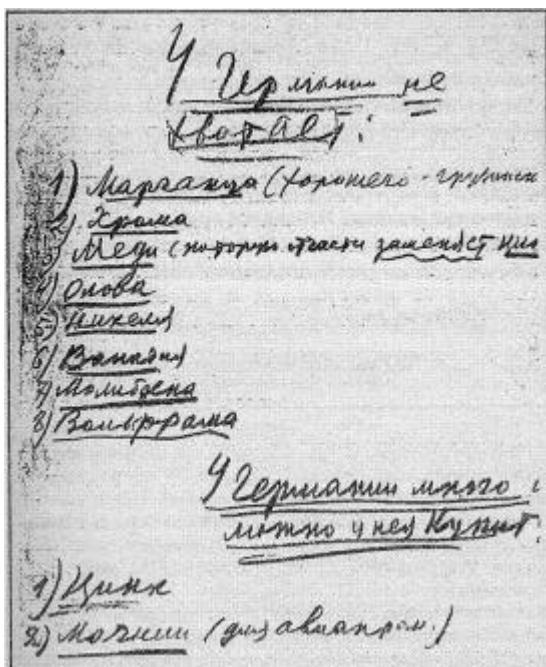 У Германии не
хватает:
1) Марганца (хорошего - грузинск
2) Хрома
3) Меди (которую отчасти заменяет цин
4) Олова
5) Никеля
6) Ванадия
7) Молибдена
8) Вольфрама
У Германии много и
можно у нея купит
1) Цинк
2) Магний (для авиапром.)